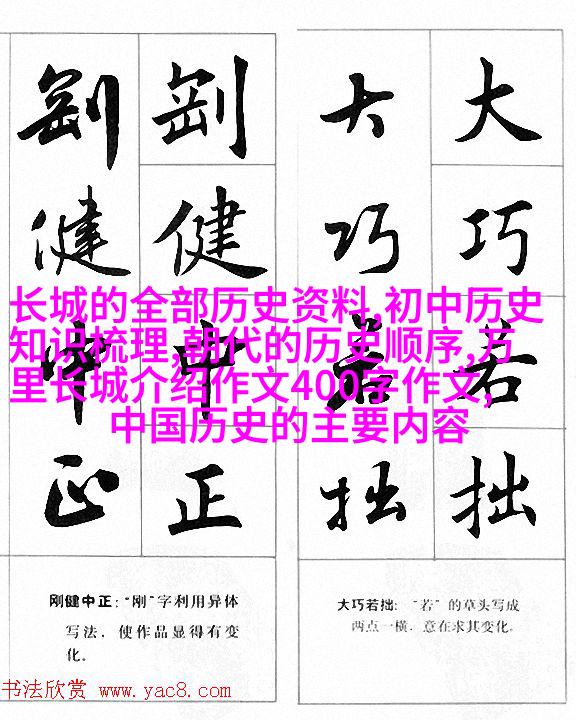 剛健中正
剛健中正
大巧若拙
大巧若拙
长城的全部历史资料,初中历史
知识梳理,朝代的历史顺序,万
里长城介绍作文400字作文,
中国历史的主要内容
刚健中正:“刚”字利用异体
写法, 使作品显得有变
化。
大巧若拙: “若”的草头写成
两点一横, 意在求其变化。
书法欣赏 www.yac8.com